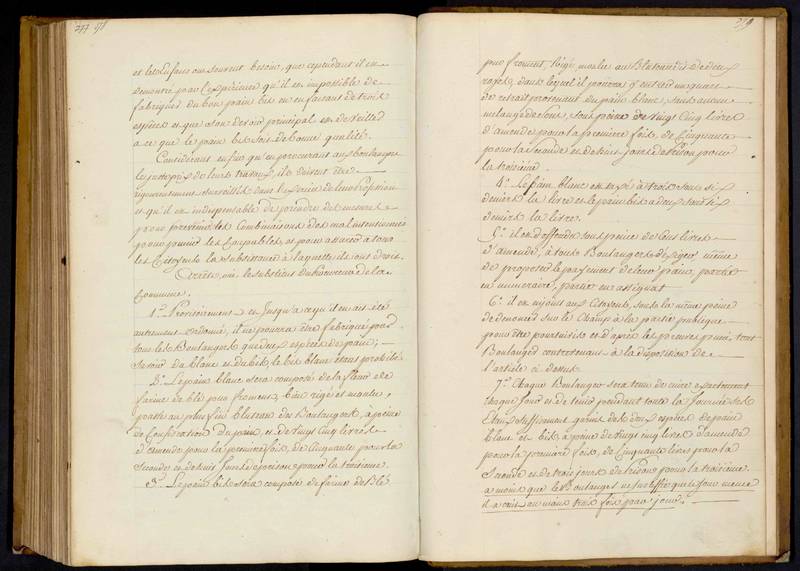 277 178
et les Enfans ont souvent besoin, que cependant il en
demontré par l'expérience qu'il est impossible de
fabriquer du bon pain bis en en faisant de trois
espèces et que a leur devoir principal est de veiller
a ce que le pain bis soit de bonne qualité.
Considérant enfin qu'en procurant aux boulangers
le juste prix de leurs travaux, ils doivent être
rigoureusement surveillés dans l'exercice de leur profession
et qu'il est indispensable de prendre des mesures
pour prévenir les combinaisons des malintentionnés
pour punir les coupables, et pour assurer a tous
les Citoyens la subsistance a laquelle ils ont droit.
Arrête, ouï le substitut du procureur de la
Commune.
1.° Provisoirement et jusqu'a ce qu'il en ait été
autrement ordonné, il ne pourra être fabriqué par
tous les Boulangers que deux espèces de pain;
Savoir du blanc et du bis, le bis blanc étant prohibé.
2.° Le pain blanc sera composé de la fleur de
farine de blé pur froment, bien rigé et
passée au plus fin bluteau des Boulangers, a peine
de Confiscation du pain, et de vingt cinq livres
d'amende pour la première fois, de Cinquante pour la
Seconde et de huit jours de prison pour la troisième.
3.° Le pain bis sera composé de farine de Blé
279
pur froment rigé, moulue au Bluteau dit de deux
rayes, dans lequel il pourra y entrer un quart
de retrait provenant du pain blanc, sans aucun
mélange de son, sous peine de vingt Cinq livres
d'amende pour la première fois, de Cinquante
pour la Seconde et de huit jours de Prison pour
la troisième.
4.° Le pain blanc est taxé a trois sous six
deniers la livre et le pain bis a deux sous six
deniers la livre.
5.° il est deffendu sous peine de Cent livres
d'amende, à tous Boulangers d'exiger même
de proposer le payement de leur pain, partie
en numéraire, partie en assignat
6.° il est enjoint aux Citoyens, sous la même peine
de dénoncer sur le Champ à la partie publique
pour être poursuivis et d'après les preuves puni, tout
Boulanger contrevenant à la disposition de
l'article ci dessus
7.° Chaque Boulanger sera tenu de cuire exactement
chaque jour et de tenir pendant toute la Journée ses
Etaux suffisamment garnis des deux espèces de pain
blanc et bis, a peine de vingt cinq livres d'amende
pour la première fois, de Cinquante livres pour la
Seconde et de trois jours de Prison pour la troisième.
a moins que le Boulanger ne justifie que le jour même
il a cuit au moins trois fois par jour.